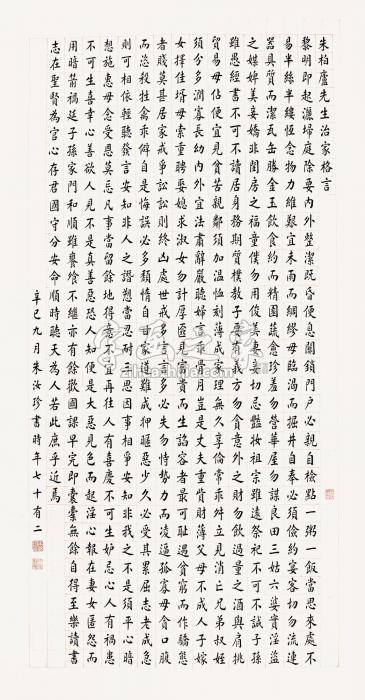 朱柏廬先生治家格言
黎明即起灑埽庭除要內外整潔既昏便息關鎖門戶必親自檢點一粥一飯當思來處不
易半絲半縷恆念物力維艱宜未雨而綢繆毋臨渴而掘井自奉必須儉約宴客切勿流連
器具質而潔瓦缶勝金玉飲食約而精園蔬愈珍羞勿營華屋勿謀良田三姑六婆實淫盜
之媒婢美妾嬌非閨房之福童僕勿用俊美妻妾切忌豔妝祖宗雖遠祭祀不可不誠子孫
雖愚經書不可不讀居身務期質樸教子要有義方勿貪意外之財勿飲過量之酒與肩挑
貿易毋佔便宜見貧苦親鄰須加溫恤刻薄成家理無久享倫常乖舛立見消亡兄弟叔姪
須分多潤寡長幼內外宜法肅辭嚴聽婦言乖骨肉豈是丈夫重貲財薄父母不成人子嫁
女擇佳壻毋索重聘娶媳求淑女勿計厚匳見富貴而生諂容者最可恥遇貧窮而作驕態
者賤莫甚居家戒爭訟訟則終凶處世戒多言言多必失勿恃勢力而凌逼孤寡毋貪口腹
而恣殺牲禽乖僻自是悔誤必多頹惰自甘家道難成狎暱惡少久必受其累屈志老成急
則可相依輕聽發言安知非人之譖愬當忍耐三思因事相爭安知非我之不是須平心暗
想施惠毋念受恩莫忘凡事當留餘地得意不宜再往人有喜慶不可生妒忌心人有禍患
不可生喜幸心善欲人見不是真善惡恐人知便是大惡見色而起淫心報在妻女匿怨而
用暗箭禍延子孫家門和順雖饔飧不繼亦有餘歡國課早完即囊橐無餘自得至樂讀書
志在聖賢為官心存君國守分安命順時聽天為人若此庶乎近焉
辛巳九月朱汝珍書時年七十有二